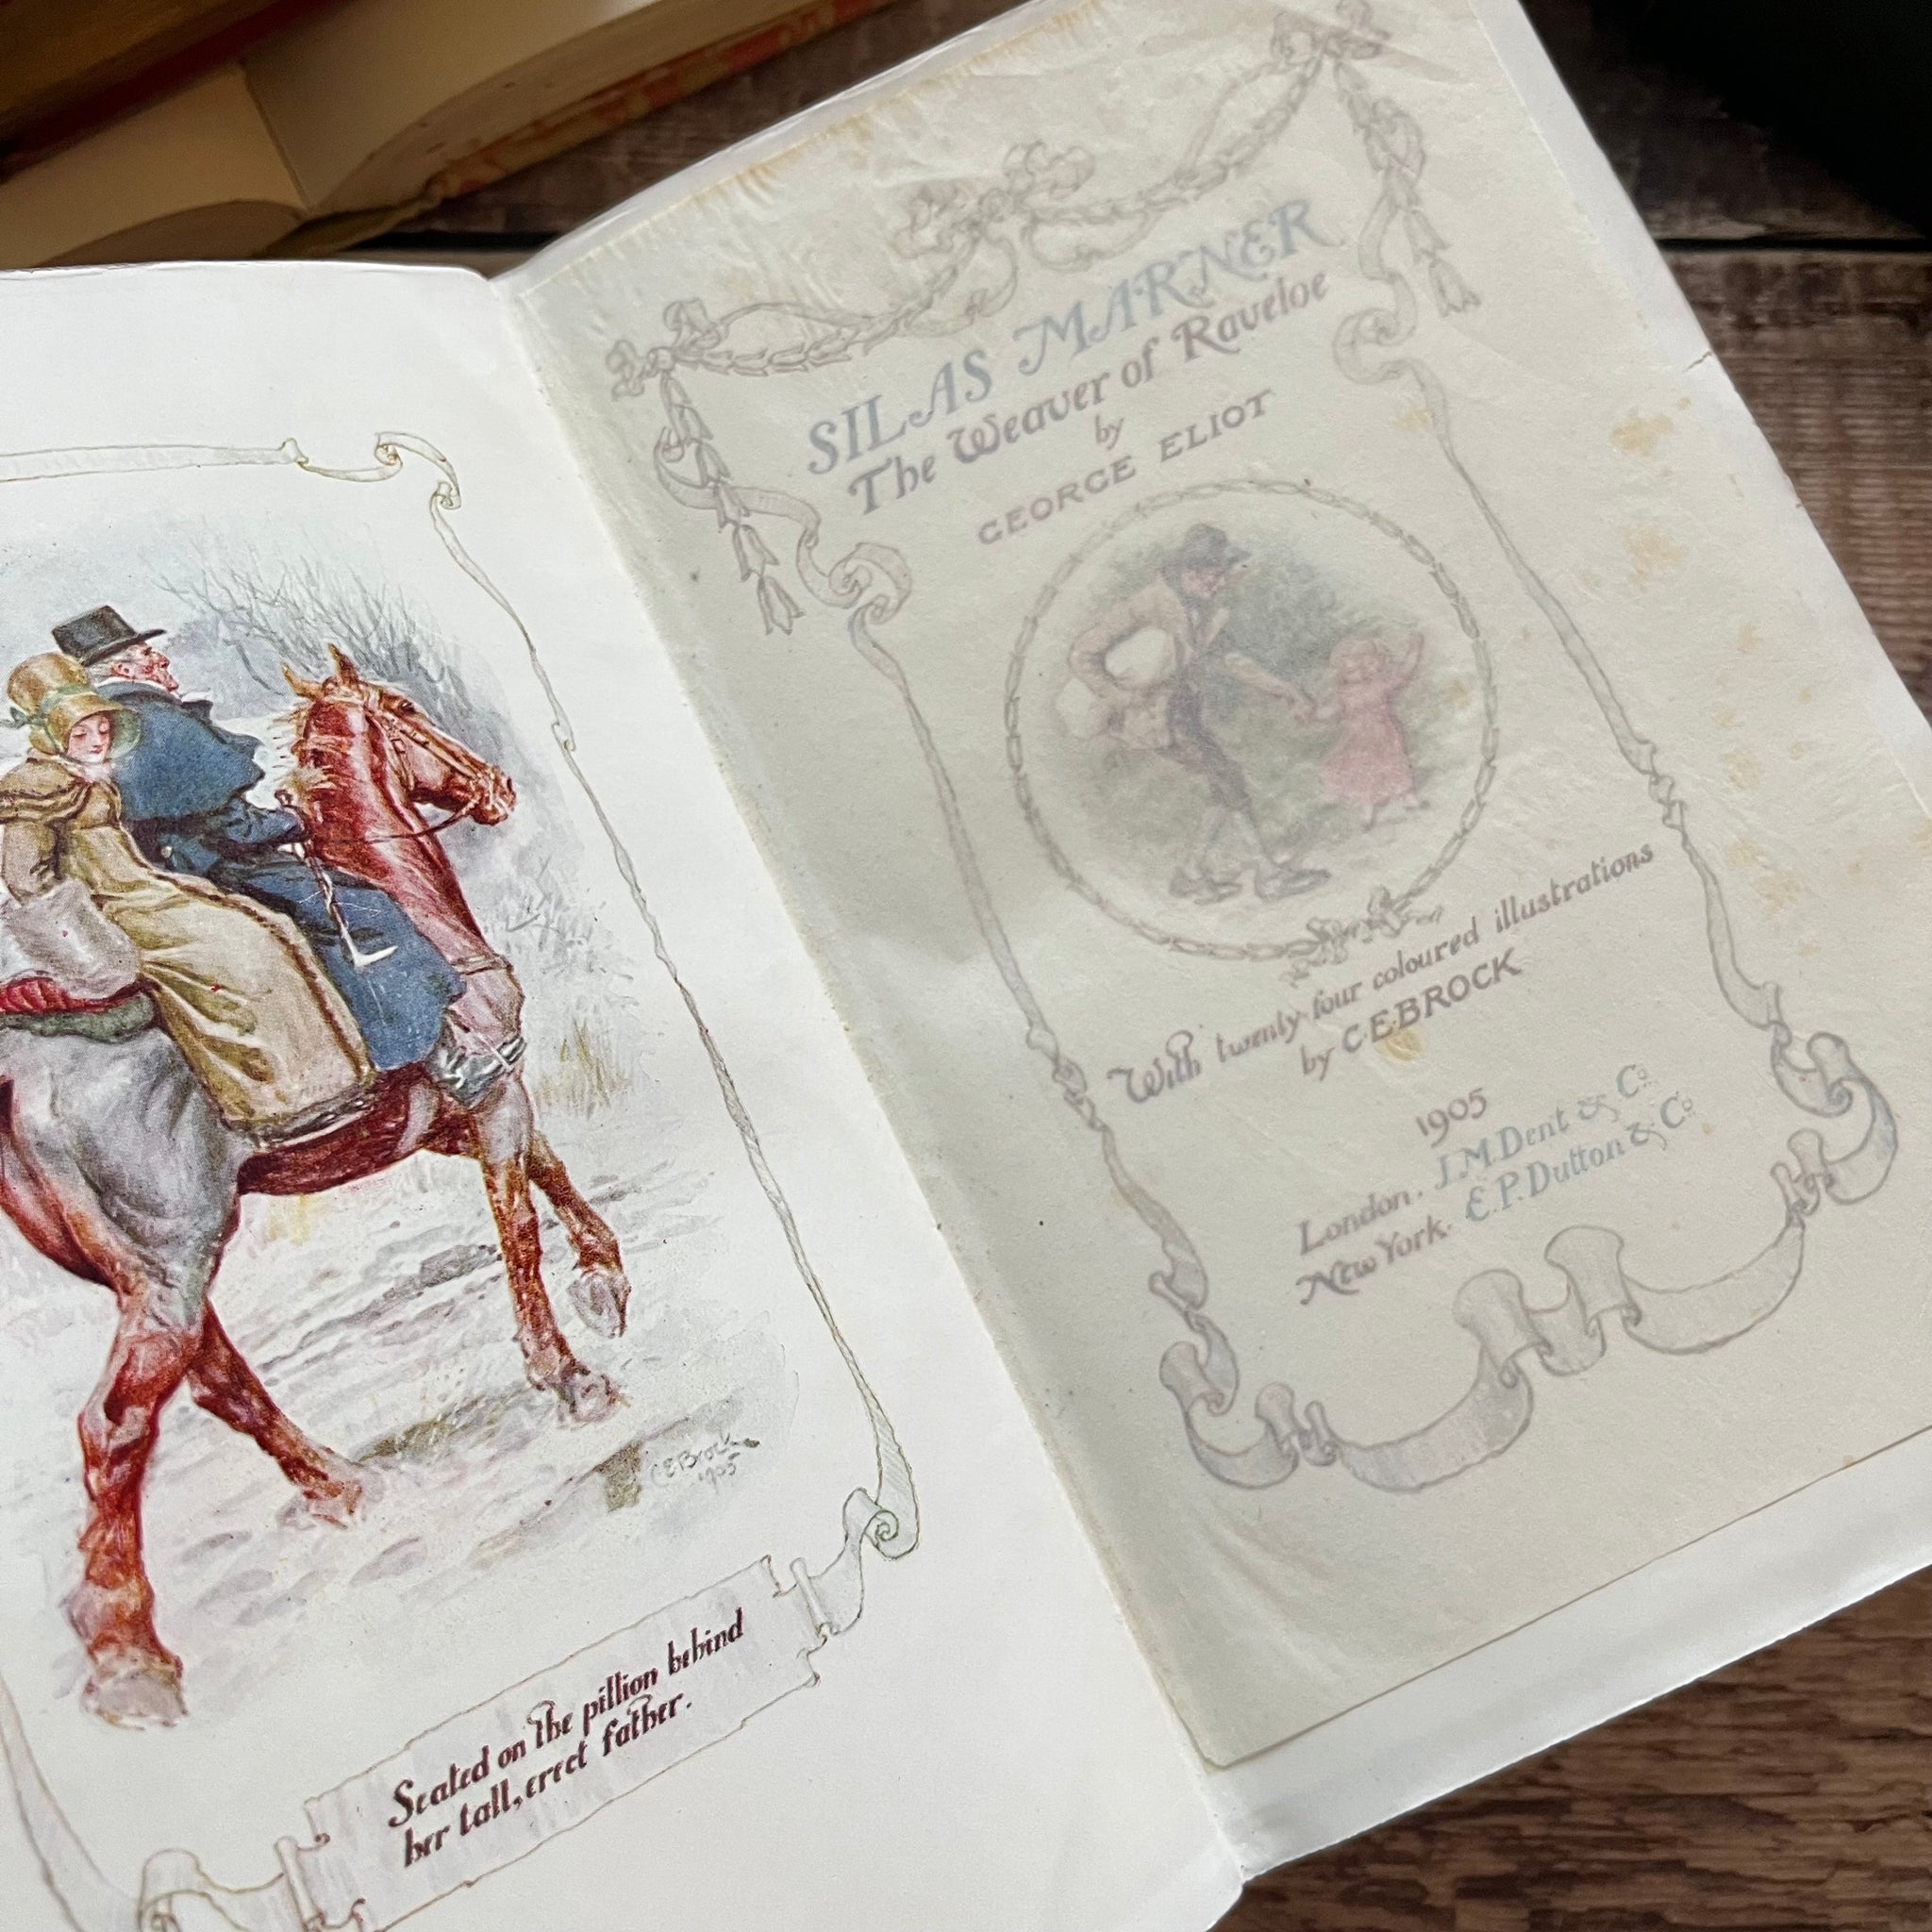 C.E.Brock
1905
Seated on the pillion behind
her tall, erect father.
SILAS MARNER
The Weaver of Raveloe
by
GEORGE ELIOT
With twenty-four coloured illustrations
by C.E.BROCK
1905
London. J.M.Dent & Co
New York. E.P.Dutton & Co